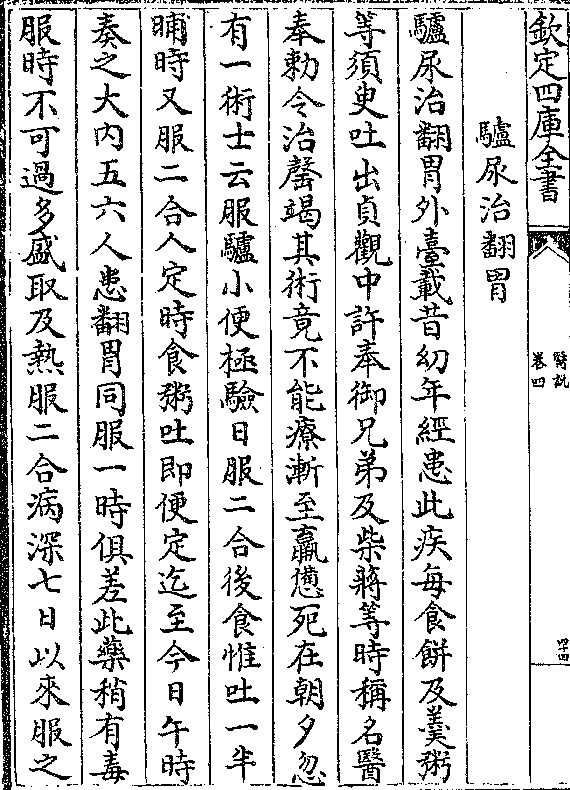 欽定四庫全書
醫說
卷四
四十四
驢尿治翻胃
驢尿治翻胃外臺載昔幼年經患此疾每食餅及羮粥
等須㬰吐出貞觀中許奉御兄弟及柴蔣等時稱名醫
奉勅令治罄竭其術竟不能療漸至羸憊死在朝夕忽
有一術士云服驢小便極驗日服二合後食惟吐一半
晡時又服二合人定時食粥吐即便定迄至今日午時
奏之大内五六人患翻胃同服一時俱差此藥稍有毒
服時不可過多盛取及熱服二合病深七日以來服之